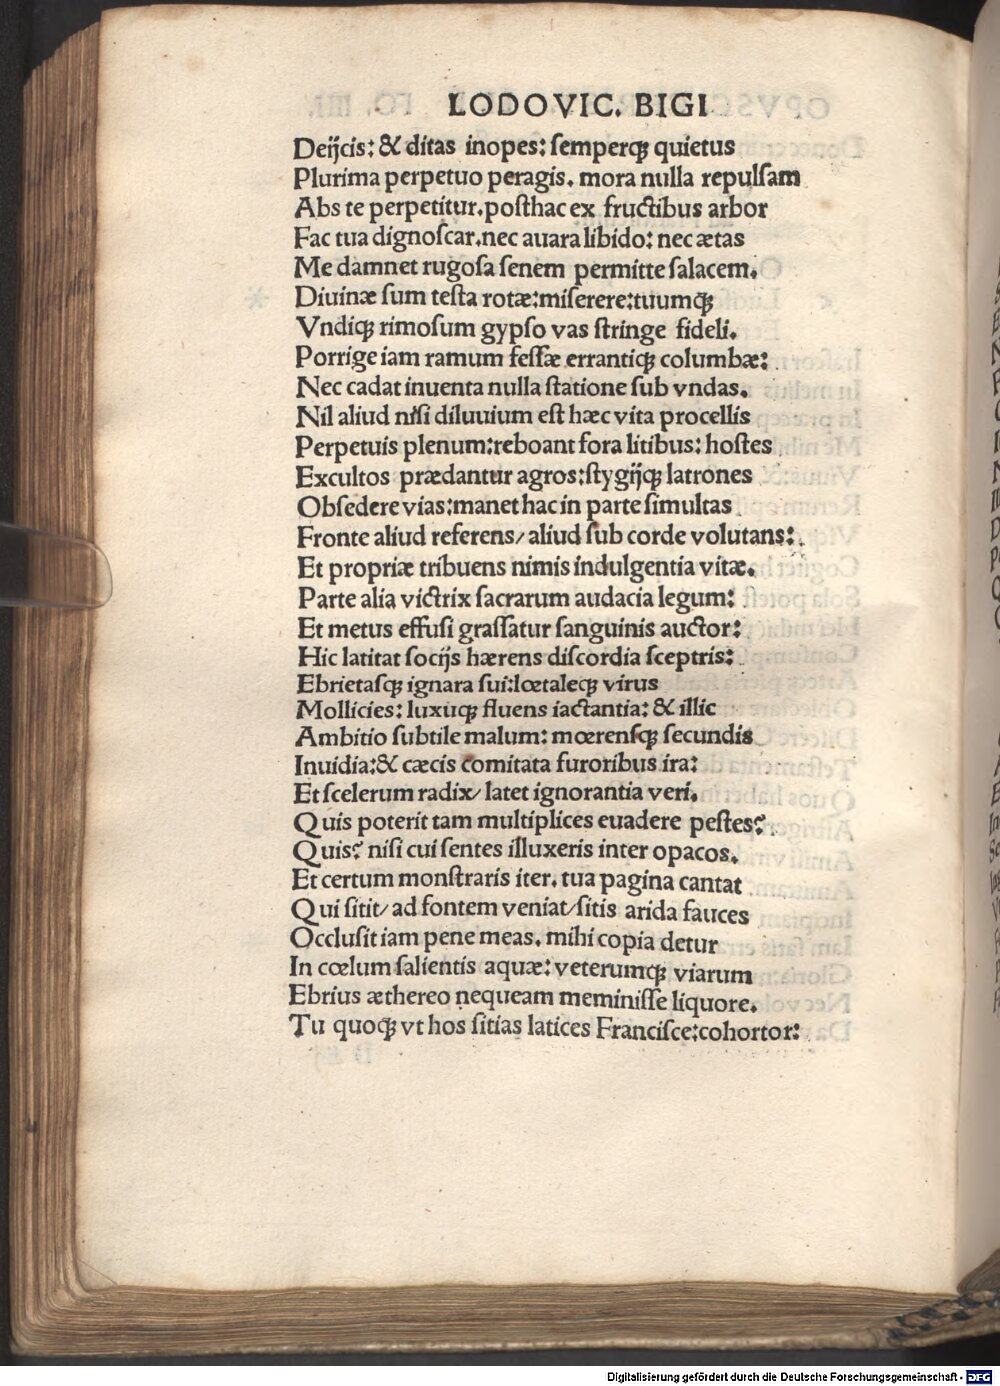 LODOVIC. BIGI
Deijcis: & ditas inopes: ſemperqꝫ quietus
Plurima perpetuo peragis. mora nulla repulſam
Abs te perpetitur. poſthac ex fructibus arbor
Fac tua dignoſcar. nec auara libido: nec ætas
Me damnet rugoſa ſenem permitte ſalacem.
Diuinæ ſum teſta rotæ: miſerere: tuumqꝫ
Vndiqꝫ rimoſum gypſo vas ſtringe fideli.
Porrige iam ramum feſſæ errantiqꝫ columbæ:
Nec cadat inuenta nulla ſtatione ſub vndas.
Nil aliud niſi diluuium eſt hæc vita procellis
Perpetuis plenum: reboant fora litibus: hoſtes
Excultos prædantur agros: ſtygijqꝫ latrones
Obſedere vias: manet hac in parte ſimultas
Fronte aliud referens/ aliud ſub corde volutans:
Et propriæ tribuens nimis indulgentia vitæ.
Parte alia victrix ſacrarum audacia legum:
Et metus effuſi graſſatur ſanguinis auctor:
Hic latitat ſocijs hærens diſcordia ſceptris:
Ebrietaſqꝫ ignara ſui: lœtaleqꝫ virus
Mollicies: luxuqꝫ fluens iactantia: & illic
Ambitio ſubtile malum: mœrenſqꝫ ſecundis
Inuidia: & cæcis comitata furoribus ira:
Et ſcelerum radix/ latet ignorantia veri.
Quis poterit tam multiplices euadere peſtes?
Quis? niſi cui ſentes illuxeris inter opacos.
Et certum monſtraris iter. tua pagina cantat
Qui ſitit/ ad fontem veniat/ ſitis arida fauces
Occluſit iam pene meas. mihi copia detur
In cœlum ſalientis aquæ: veterumqꝫ viarum
Ebrius æthereo nequeam meminiſſe liquore.
Tu quoqꝫ vt hos ſitias latices Franciſce: cohortor:
Digitalisierung gefördert durch die Deutsche Forschungsgemeinschaft - DFG